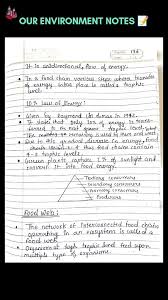 OUR ENVIRONMENT NOTES 📝
It is unidirectional flow of energy.
In a food chain various steps where transfer
of energy takes place is called a trophic
level.
10% Law of Energy:
Given by Raymond Lindeman in 1942.
It states that only 10% of energy is trans-
ferred to next trophic level.
The remaining
Due to this gradual decrease in energy, food
chain contains
3-4 trophic levels.
Green plants capture 1% of sunlight and
convert it into food energy.
Tertiary consumers
Secondary consumers
Primary consumers
Producers
Food Web:
The network of interconnected food chains
operating in an ecosystem is called a
food web.
Organisms of high trophic level feed upon
multiple type of organisms.